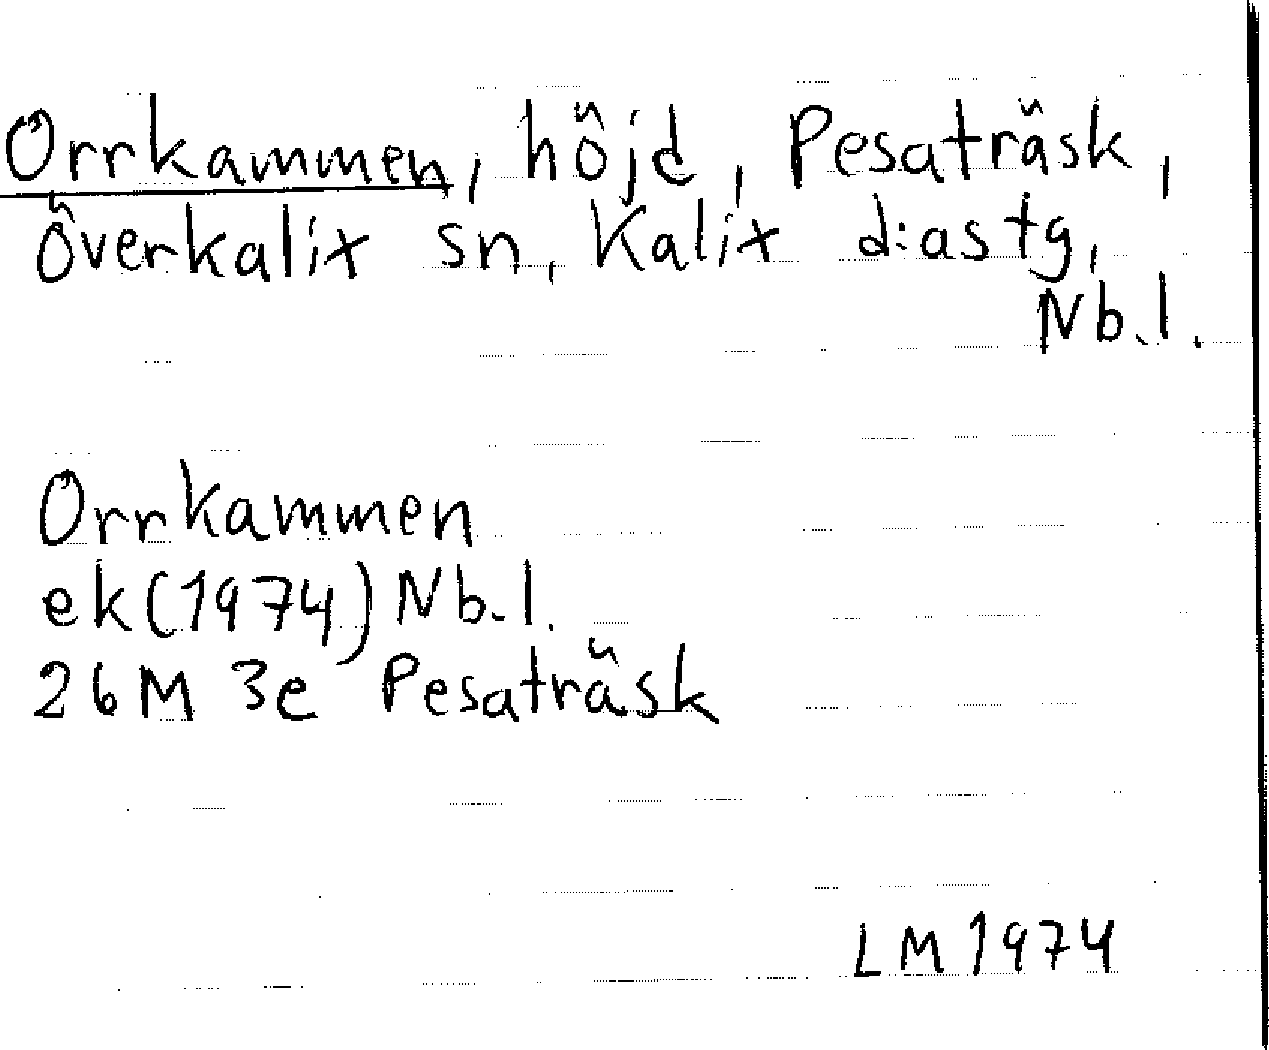 Orrkammen, höjd, Pesaträsk,
Överkalix sn, Kalix d:astg,
Nb.l.
Orrkammen
ek(1974) Nb.l.
26M 3e Pesaträsk
LM 1974